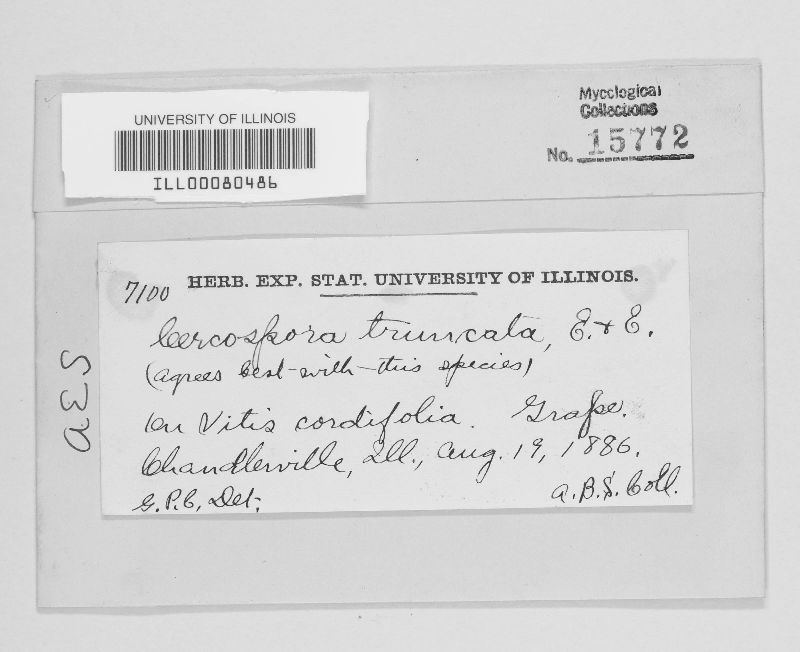 UNIVERSITY OF ILLINOIS
ILL00080486
Mycological
Collections
No. 15772
7100 HERB. EXP. STAT. UNIVERSITY OF ILLINOIS.
Cercospora truncata, E. & E.
(agrees best with this species)
On Vitis cordifolia. Grape.
Chandlerville, Ill., Aug. 19, 1886.
G.P.C. Det. A.B.S. Coll.
AES